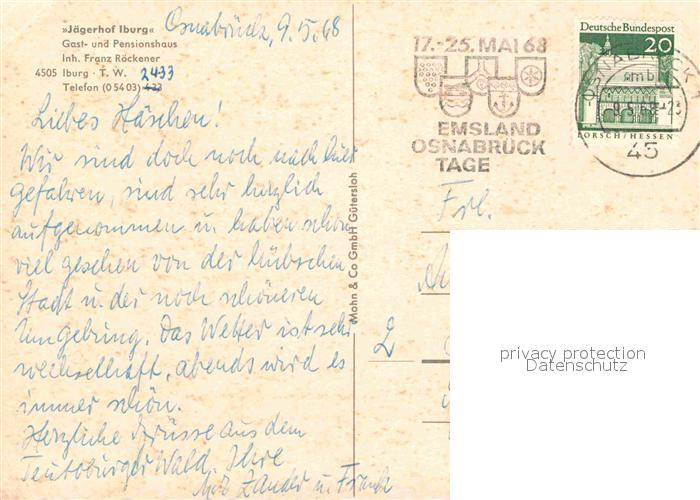 »Jägerhof Iburg«
Gast- und Pensionshaus
Inh. Franz Röckener
4505 Iburg · T. W.
2433
Telefon (0 54 03) 433
Osnabrück, 9.5.68
Liebes Häschen!
Wir sind doch noch nach hier
gefahren, sind sehr herzlich
aufgenommen u. haben schon
viel gesehen von der hübschen
Stadt u. der noch schöneren
Umgebung. Das Wetter ist sehr
wechselhaft, abends wird es
immer schön.
Herzliche Grüsse aus dem
Teutoburger Wald. Ihre
Zander u. Frank
Mohn & Co GmbH Gütersloh
17.-25. MAI 68
EMSLAND
OSNABRÜCK
TAGE
Deutsche Bundespost
20
LORSCH/HESSEN
OSNABRÜCK 1
mb
45
Frl.
2
privacy protection
Datenschutz